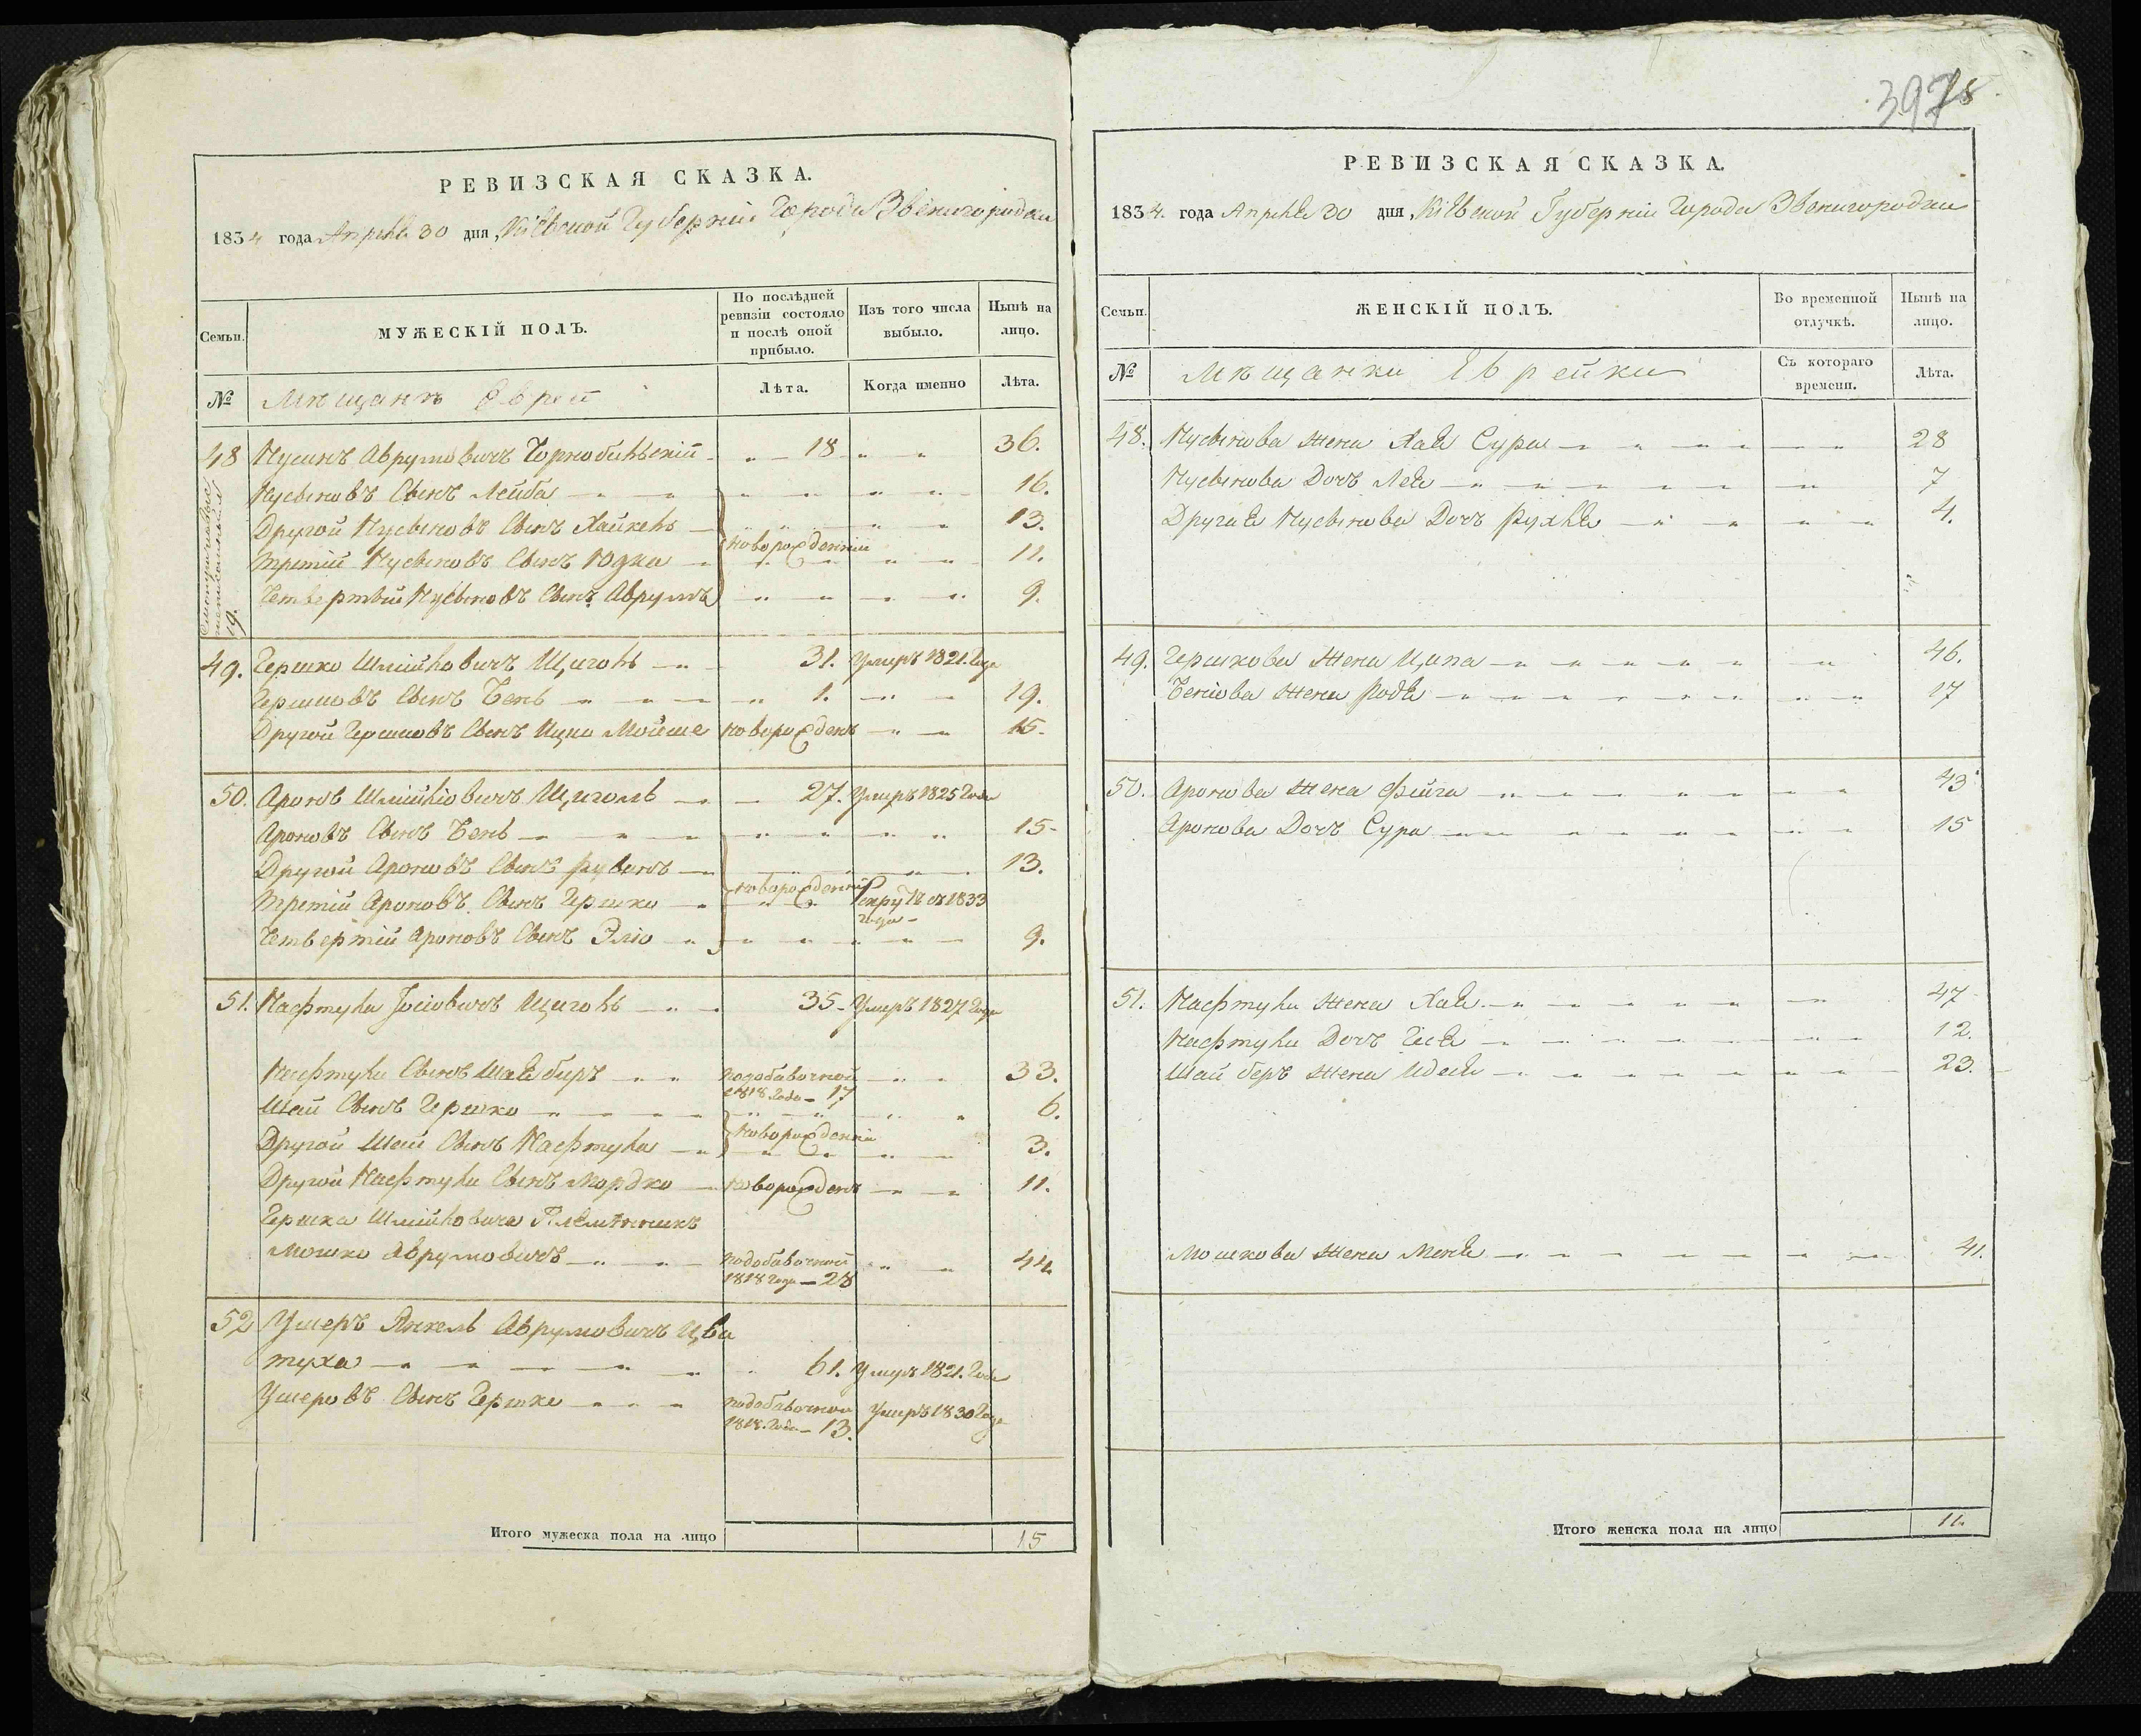 РЕВИЗСКАЯ СКАЗКА.
1834 года Апреля 30 дня, Кіевской Губерніи Города Звенигородки
Семьи.
МУЖЕСКІЙ ПОЛЪ.
По послѣдней ревизіи состояло и послѣ оной прибыло.
Изъ того числа выбыло.
Нынѣ на лицо.
№ Мѣщанъ Еврей
Лѣта.
Когда именно
Лѣта.
48 Нусинъ Аврумовичъ Чорнобильскій 18 36.
Нусыновъ Сынъ Лейба 16.
Другой Нусыновъ Сынъ Хайкель 13.
новорожденніи
Третій Нусыновъ Сынъ Юдка 11.
Четвертый Нусыновъ Сынъ Аврумъ 9.
19.
49. Гершко Шлійковичъ Щиголь 31. Умеръ 1821. Года
Гершковъ Сынъ Бень 1. 19.
Другой Гершковъ Сынъ Ицко Мойше новорожденъ 15.
50. Аронъ Шлійковичъ Щиголь 27. Умеръ 1825 Года
Ароновъ Сынъ Бень 15.
Другой Ароновъ Сынъ Рувинъ 13.
новорожденній
Третій Ароновъ Сынъ Гершко Рекрутъ съ 1833 года
Четвертій Ароновъ Сынъ Эліо 9.
51. Нафтула Іосіовичъ Щиголь 35. Умеръ 1827 Года
Нафтулы Сынъ Шаябиръ подобавочной 1818 Года 17 33.
Шаи Сынъ Гершко 6.
новорожденніи
Другой Шаи Сынъ Нафтула 3.
Другой Нафтулы Сынъ Мордко новорожденъ 11.
Гершка Шлійковича Племянникъ
Мошко Аврумовичъ подобавочной 1818 Года 28 44
52 Ушеръ Янкель Аврумовичъ Цва
туха 61. Умеръ 1821. Года
Ушеровъ Сынъ Гершко подобавочной 1818. Года 13. Умеръ 1830 Года
Итого мужеска пола на лицо 15
397
РЕВИЗСКАЯ СКАЗКА.
1834. года Апреля 30 дня, Кіевской Губерніи Города Звенигородки
Семьи.
ЖЕНСКІЙ ПОЛЪ.
Во временной отлучкѣ.
Нынѣ на лицо.
№ Мѣщанки Еврейки
Съ котораго времени.
Лѣта.
48. Нусынова жена Хая Сура 28
Нусынова Дочъ Лея 7
Другая Нусынова Дочъ Рухля 4.
49. Гершкова жена Ципа 46.
Беніова жена Родя 17
50. Аронова жена Фейга 43
Аронова Дочъ Сура 15
51. Нафтулы жена Хая 47
Нафтулы Дочъ Гися 12.
Шаи беръ жена Идеся 23.
Мошкова жена Меня 41.
Итого женска пола на лицо 11.